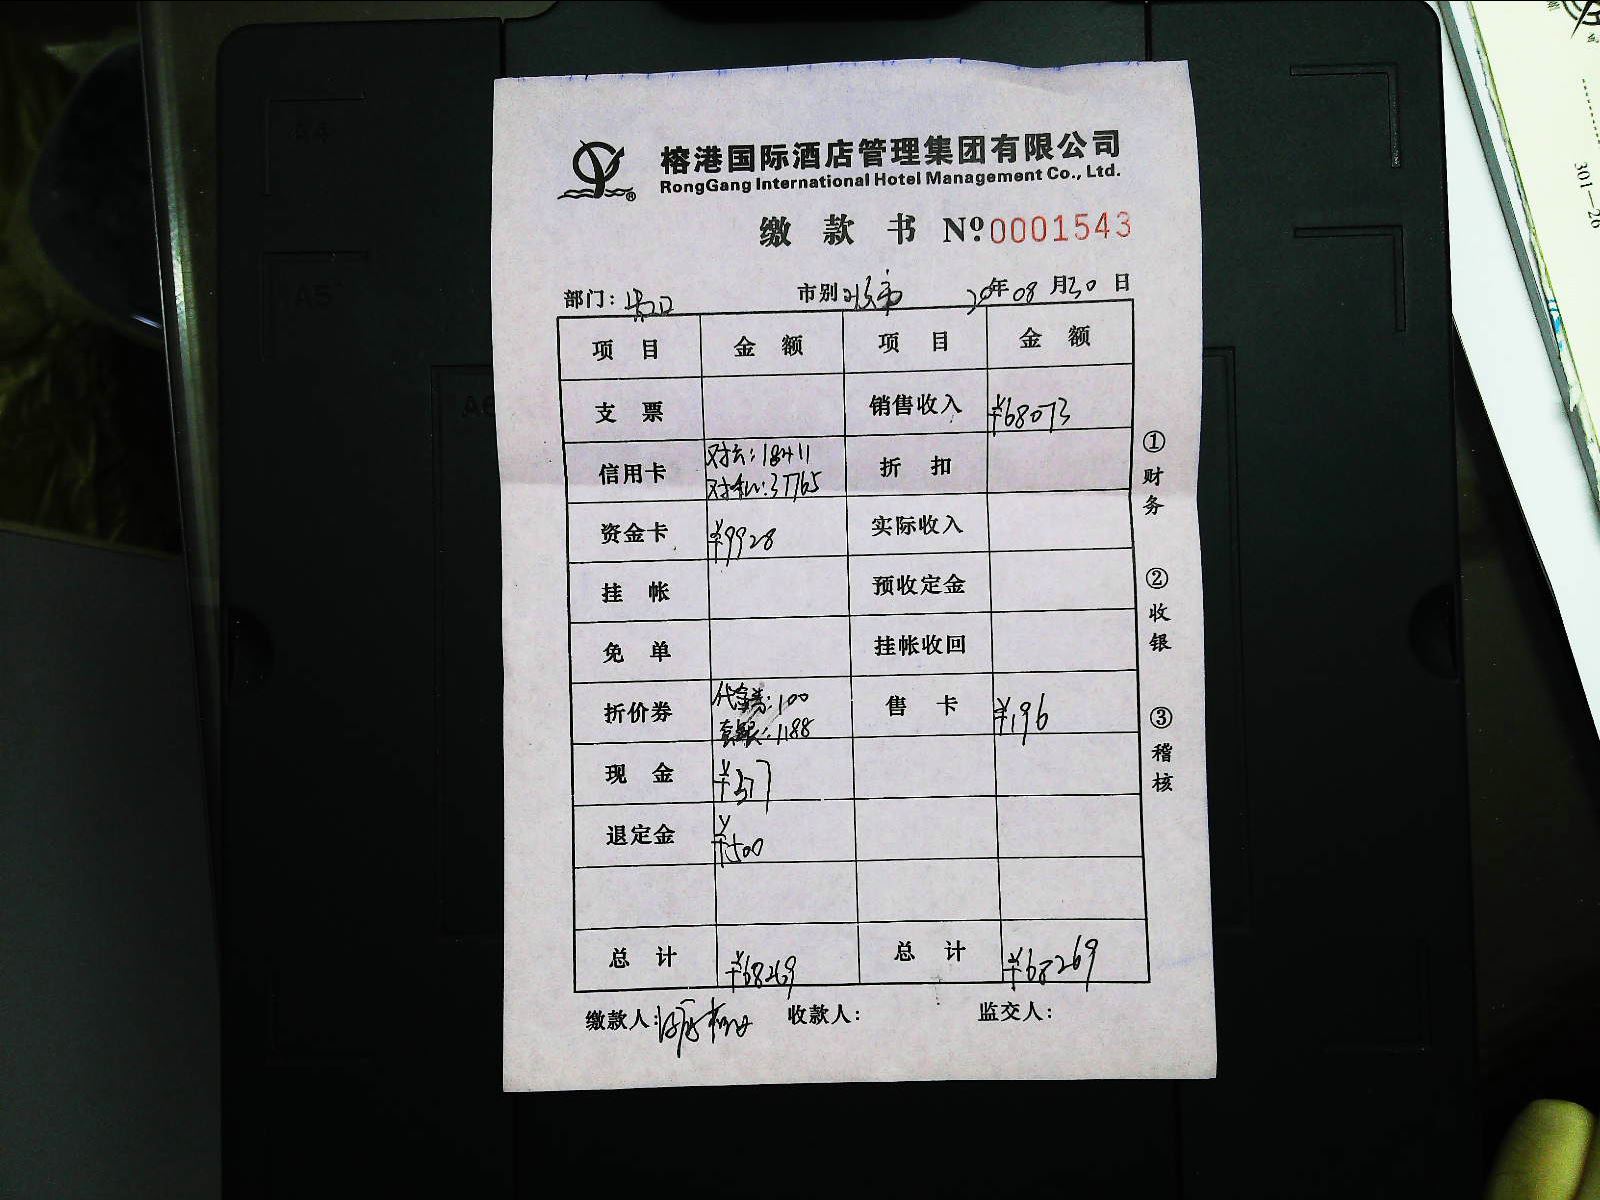 榕港国际酒店管理集团有限公司
RongGang International Hotel Management Co., Ltd.
缴 款 书 Nº 0001543
部门: 市别 20年08月30日
项 目 金 额 项 目 金 额
支 票 销售收入 ¥68073
信用卡 对公:18411 折 扣
对私:37765
资金卡 ¥9928 实际收入
挂 帐 预收定金
免 单 挂帐收回
折价券 代金券:100 售 卡 ¥196
:1188
现 金 ¥377
退定金 ¥500
总 计 ¥68269 总 计 ¥68269
缴款人: 收款人: 监交人:
①财务
②收银
③稽核
A4
A5
301—26